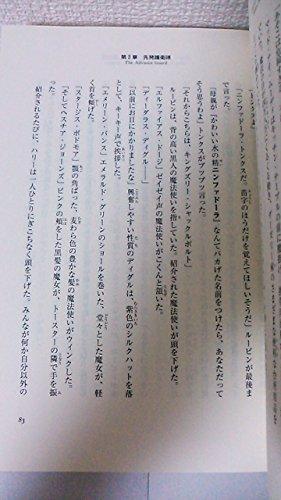 第3章 先発護衛隊
The Advance Guard
「ニンファドーラ・トンクスだ。苗字のほうだけを覚えてほしいそうだ」ルーピンが最後ま
「母親が『かわいい水の精ニンファドーラ』なんてバカげた名前をつけたら、あなただって
そう思うわよ」トンクスがブツブツ言った。
「それからこちらは、キングズリー・シャックルボルト」
ルーピンは、背の高い黒人の魔法使いを指していた。紹介された魔法使いが頭を下げた。
「エルファイアス・ドージ」ゼイゼイ声の魔法使いがこくんと頷いた。
「ディーダラス・ディグル――」
「以前にお目にかかりましたな」興奮しやすい性質のディグルは、紫色のシルクハットを落
として、キーキー声で挨拶した。
「エメリーン・バンス」エメラルド・グリーンのショールを巻いた、堂々とした魔女が、軽
く首を傾げた。
「スタージス・ポドモア」顎の角ばった、麦わら色の豊かな髪の魔法使いがウィンクした。
「そしてヘスチア・ジョーンズ」ピンクの頬をした黒髪の魔女が、トースターの隣で手を振
紹介されるたびに、ハリーは一人ひとりにぎこちなく頭を下げた。みんなが何か自分以外の
83